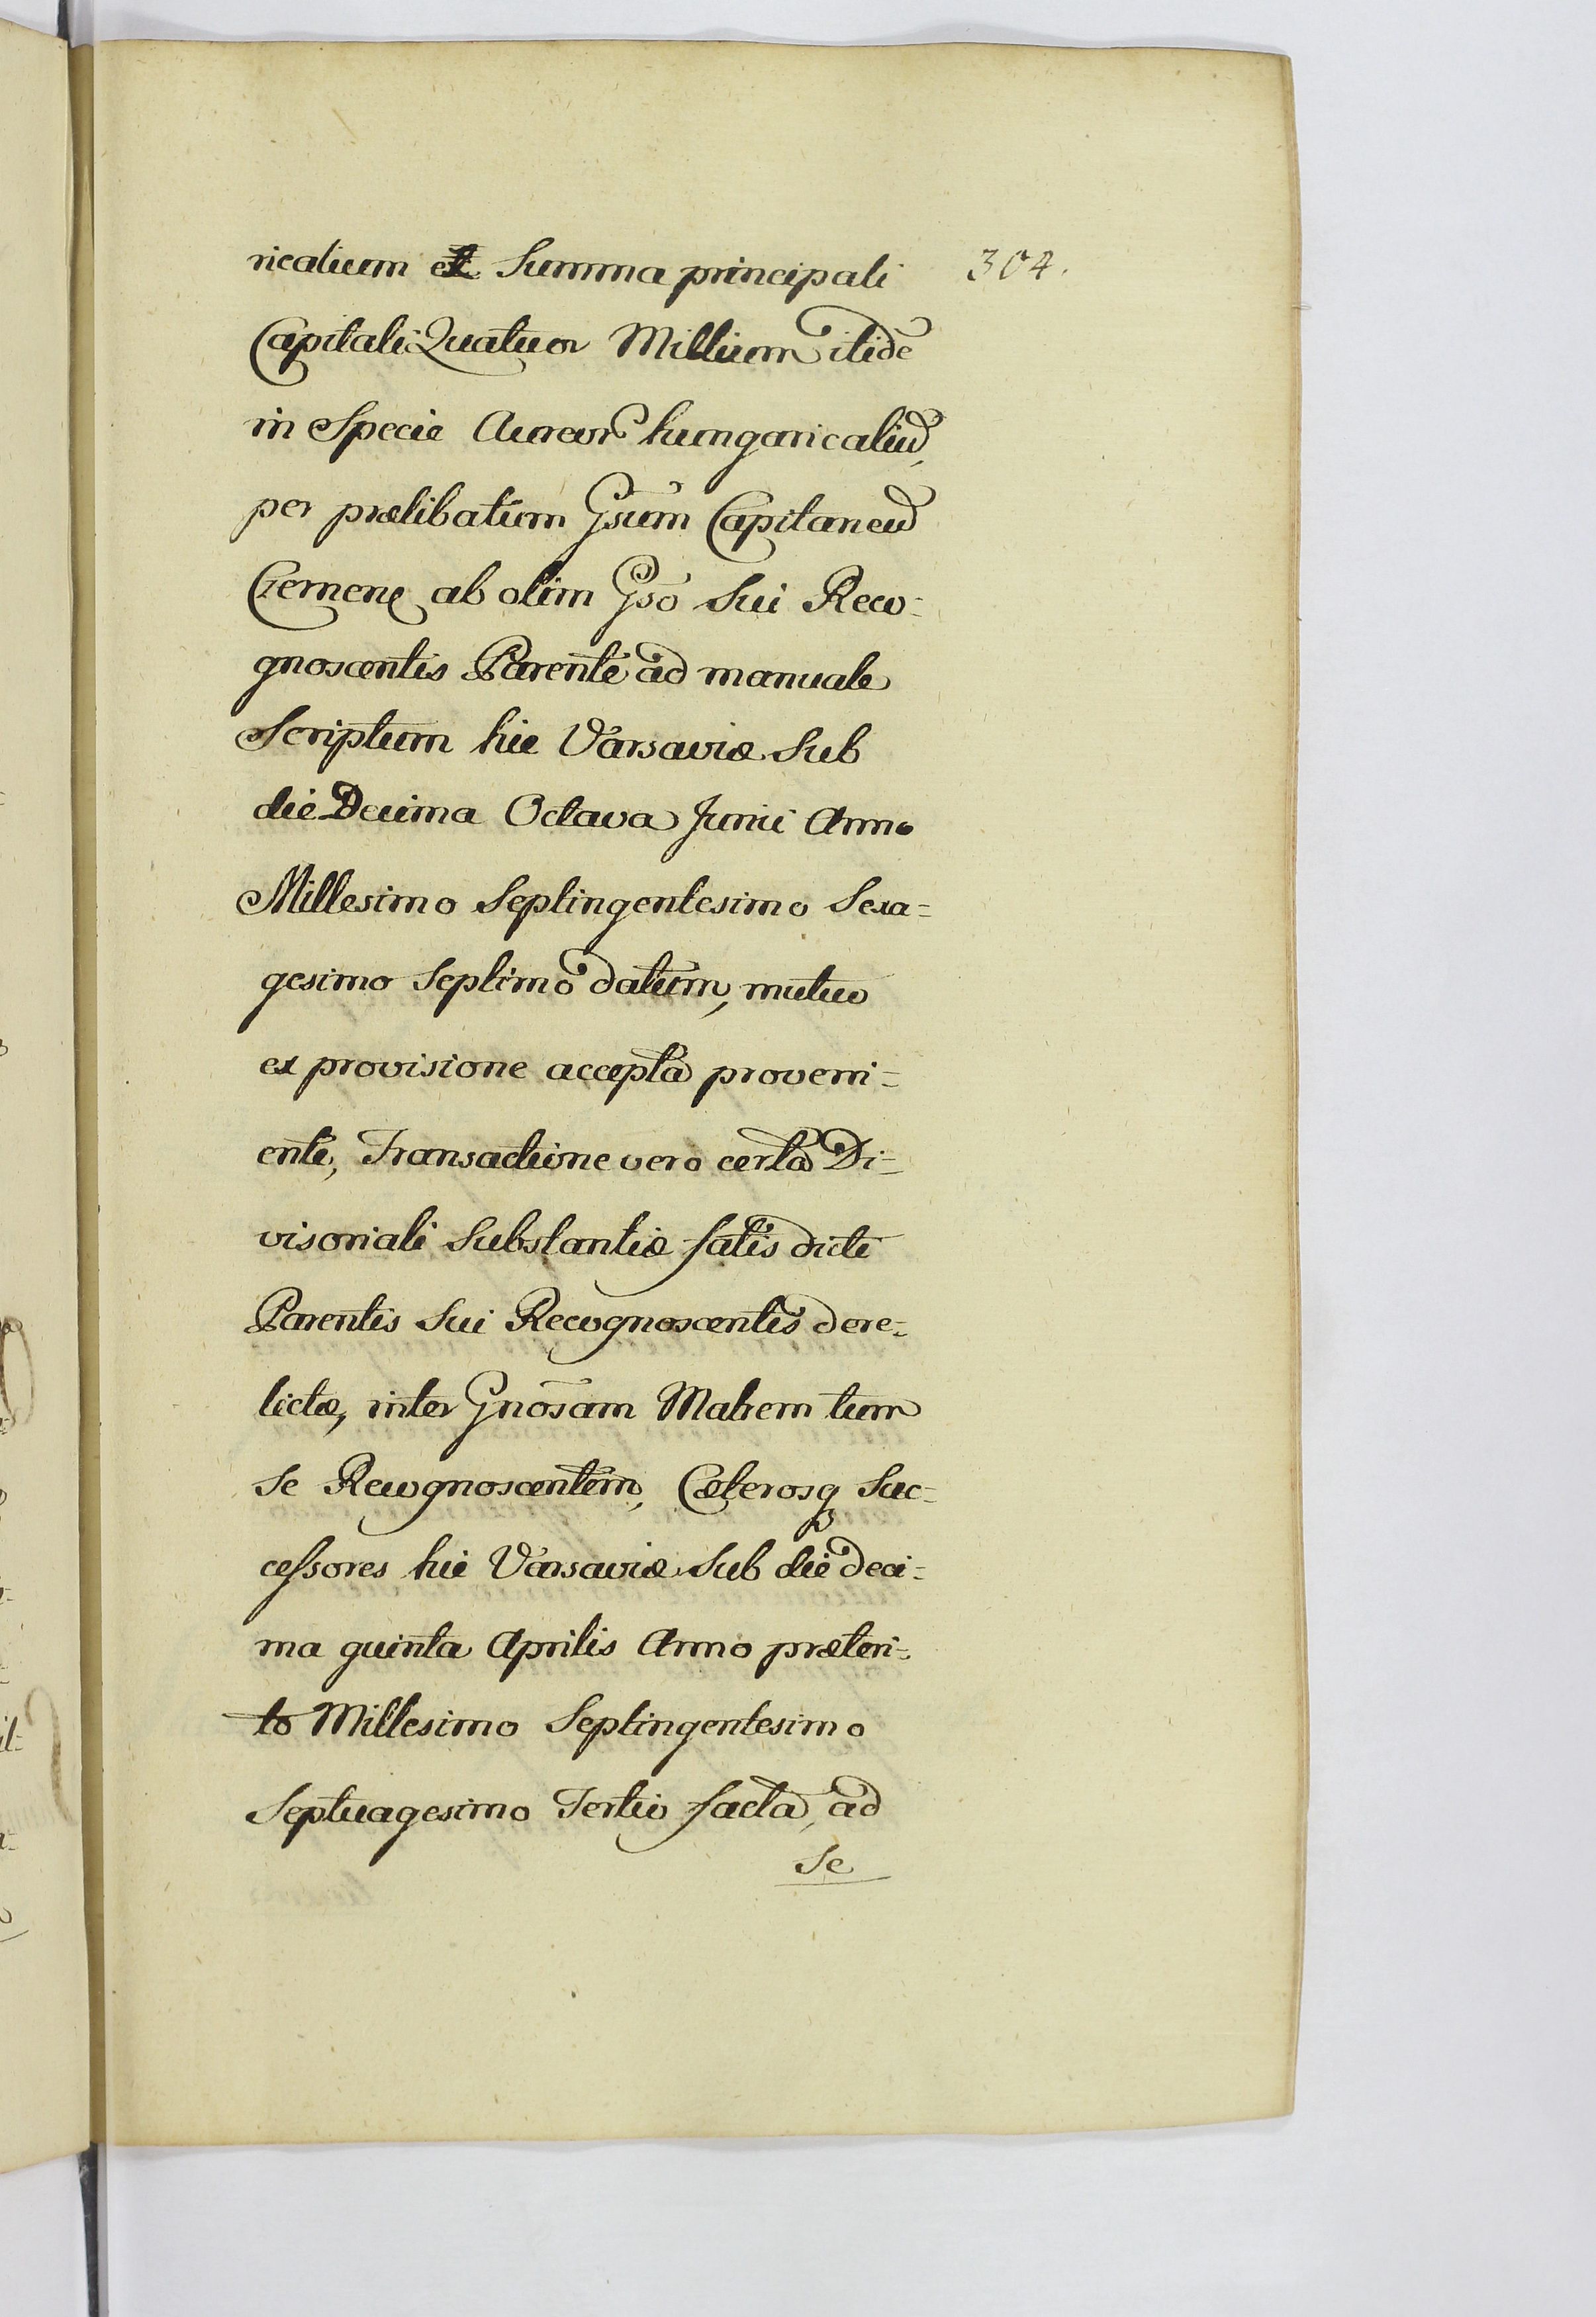 ricalium ex Summa principali 304.
Capitali Quatuor Millium itidē
in Specie Aureor hungaricaliū,
per prælibatum Gsum Capitaneū
Cremene ab olim Gso Sui Reco-
gnoscentis Parente ad manuale
Scriptum hic Varsaviæ Sub
die Decima Octava Junii Anno
Millesimo Septingentesimo Sexa=
gesimo Septimo datum, mutuo
ex provisione accepta proveni=
ente, Transactione vero certa Di=
visoriali Substantiæ fatis dicti
Parentis Sui Recognoscentis dere=
lictæ, inter Gnōsam Matrem tum
Se Recognoscentem, Cæterosq Suc=
cessores hic Varsaviæ Sub die deci=
ma quinta Aprilis Anno præteri=
to Millesimo Septingentesimo
Septuagesimo Tertio facta, ad
Se